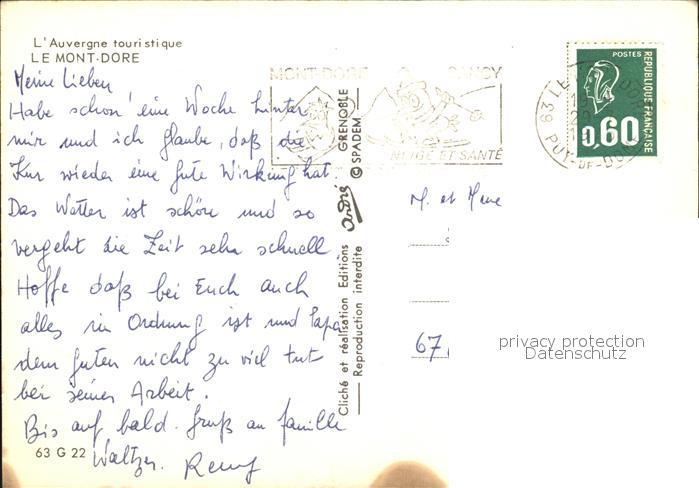 L'Auvergne touristique
LE MONT-DORE
Meine Lieben
Habe schon eine Woche hinter
mir und ich glaube, daß die
Kur wieder eine gute Wirkung hat.
Das Wetter ist schön und so
vergeht die Zeit sehr schnell.
Hoffe daß bei Euch auch
alles in Ordnung ist und Papa
dem guten nicht zu viel tut
bei seiner Arbeit.
Bis auf bald. Gruß an familie
Waltzer.
63 G 22
MONT-DORE SANCY
NEIGE ET SANTÉ
GRENOBLE
© SPADEM
andré
Cliché et réalisation Editions
Reproduction interdite
POSTES
REPUBLIQUE FRANÇAISE
0,60
63 LE
PUY-DE-DOME
M. et Mme
67
privacy protection
Datenschutz